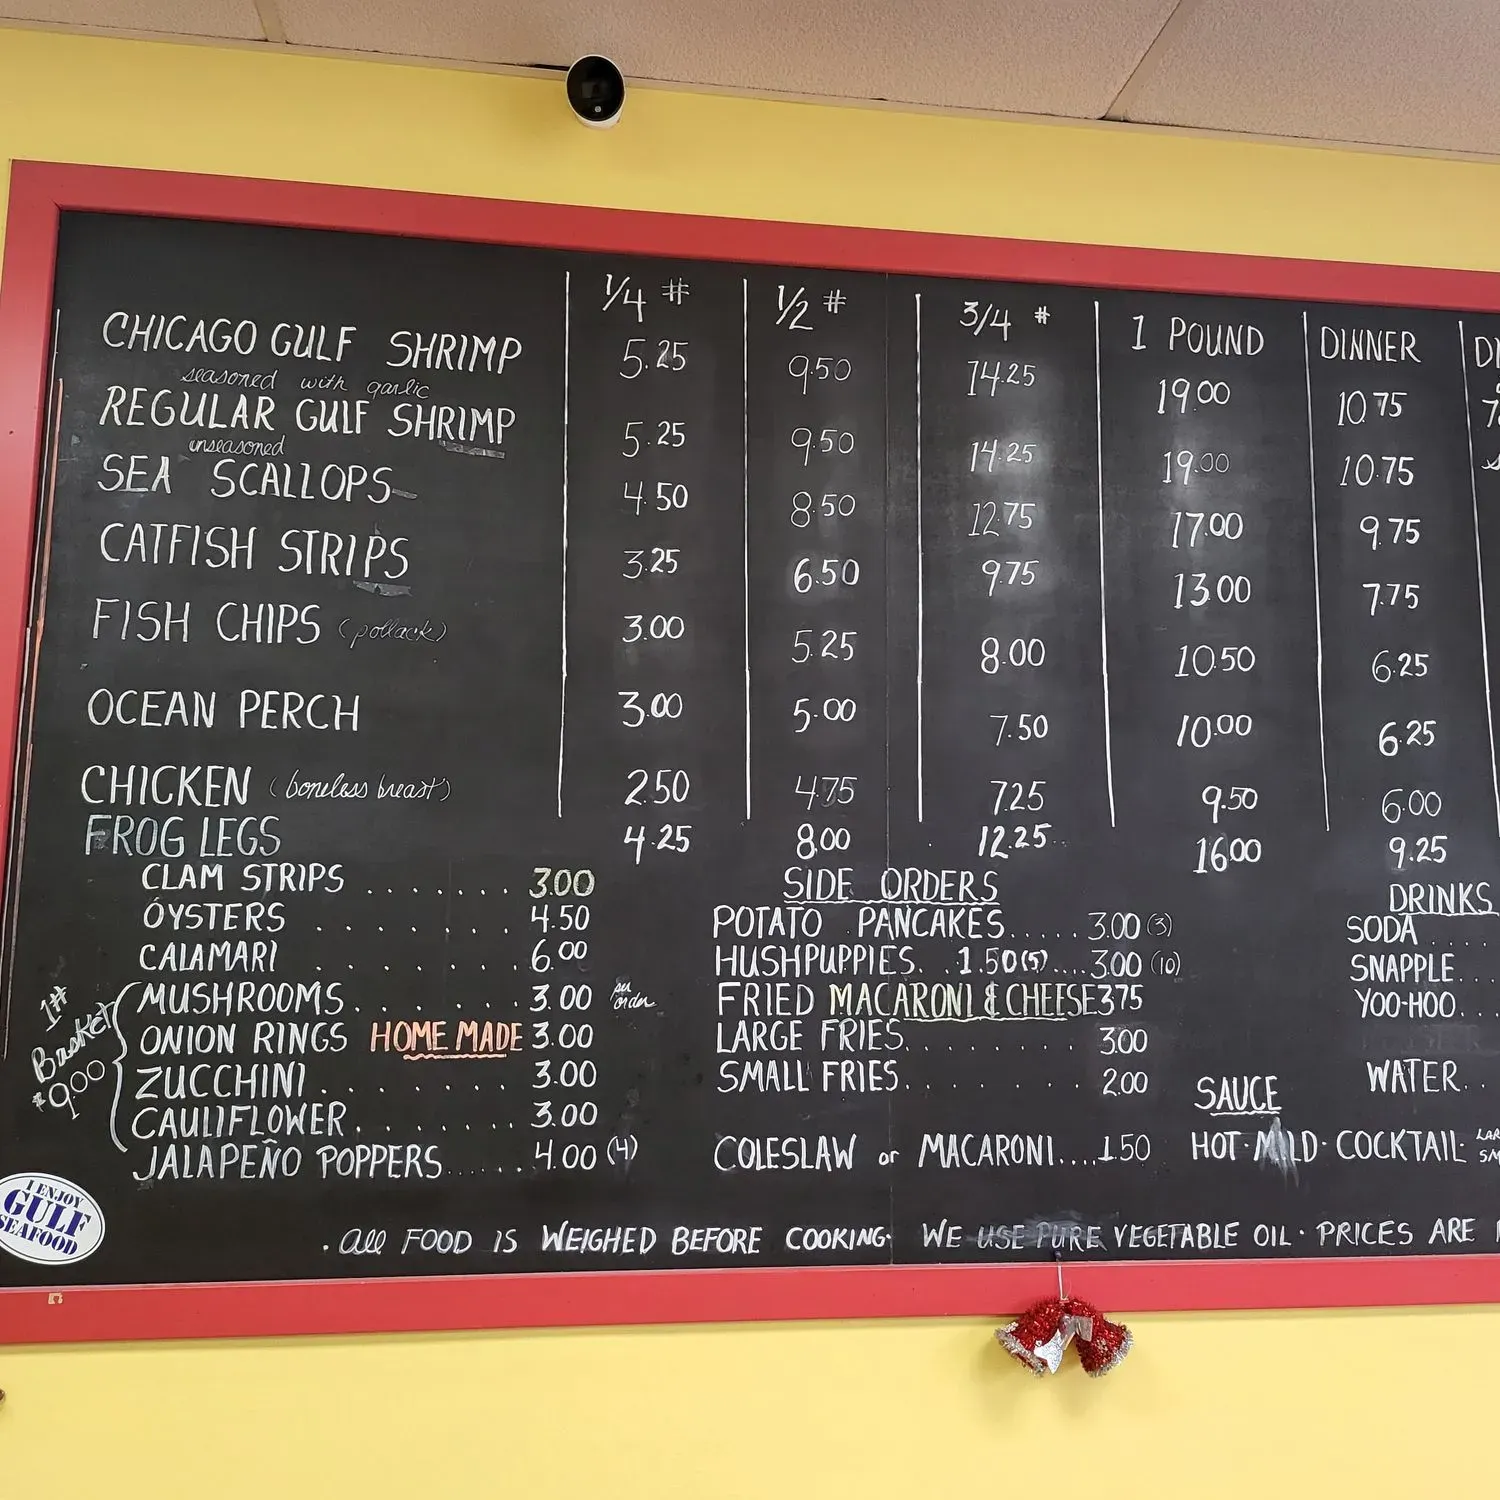 1/4 # 1/2 # 3/4 # 1 POUND DINNER
CHICAGO GULF SHRIMP 5.25 9.50 14.25 19.00 10.75
seasoned with garlic
REGULAR GULF SHRIMP 5.25 9.50 14.25 19.00 10.75
unseasoned
SEA SCALLOPS 4.50 8.50 12.75 17.00 9.75
CATFISH STRIPS 3.25 6.50 9.75 13.00 7.75
FISH CHIPS (pollack) 3.00 5.25 8.00 10.50 6.25
OCEAN PERCH 3.00 5.00 7.50 10.00 6.25
CHICKEN (boneless breast) 2.50 4.75 7.25 9.50 6.00
FROG LEGS 4.25 8.00 12.25 16.00 9.25
CLAM STRIPS ....... 3.00
OYSTERS ....... 4.50
CALAMARI ....... 6.00
MUSHROOMS ....... 3.00 per order
ONION RINGS HOME MADE 3.00
ZUCCHINI ....... 3.00
CAULIFLOWER ....... 3.00
JALAPEÑO POPPERS ...... 4.00 (4)
1# Basket $9.00
SIDE ORDERS
POTATO PANCAKES ..... 3.00 (3)
HUSHPUPPIES. . 1.50(5).... 3.00 (10)
FRIED MACARONI & CHEESE 3.75
LARGE FRIES ........ 3.00
SMALL FRIES ........ 2.00
COLESLAW or MACARONI .... 1.50
DRINKS
SODA ....
SNAPPLE ..
YOO-HOO ...
WATER ..
SAUCE
HOT · MILD · COCKTAIL ·
. All FOOD IS WEIGHED BEFORE COOKING · WE USE PURE VEGETABLE OIL · PRICES ARE
I ENJOY
GULF
SEAFOOD